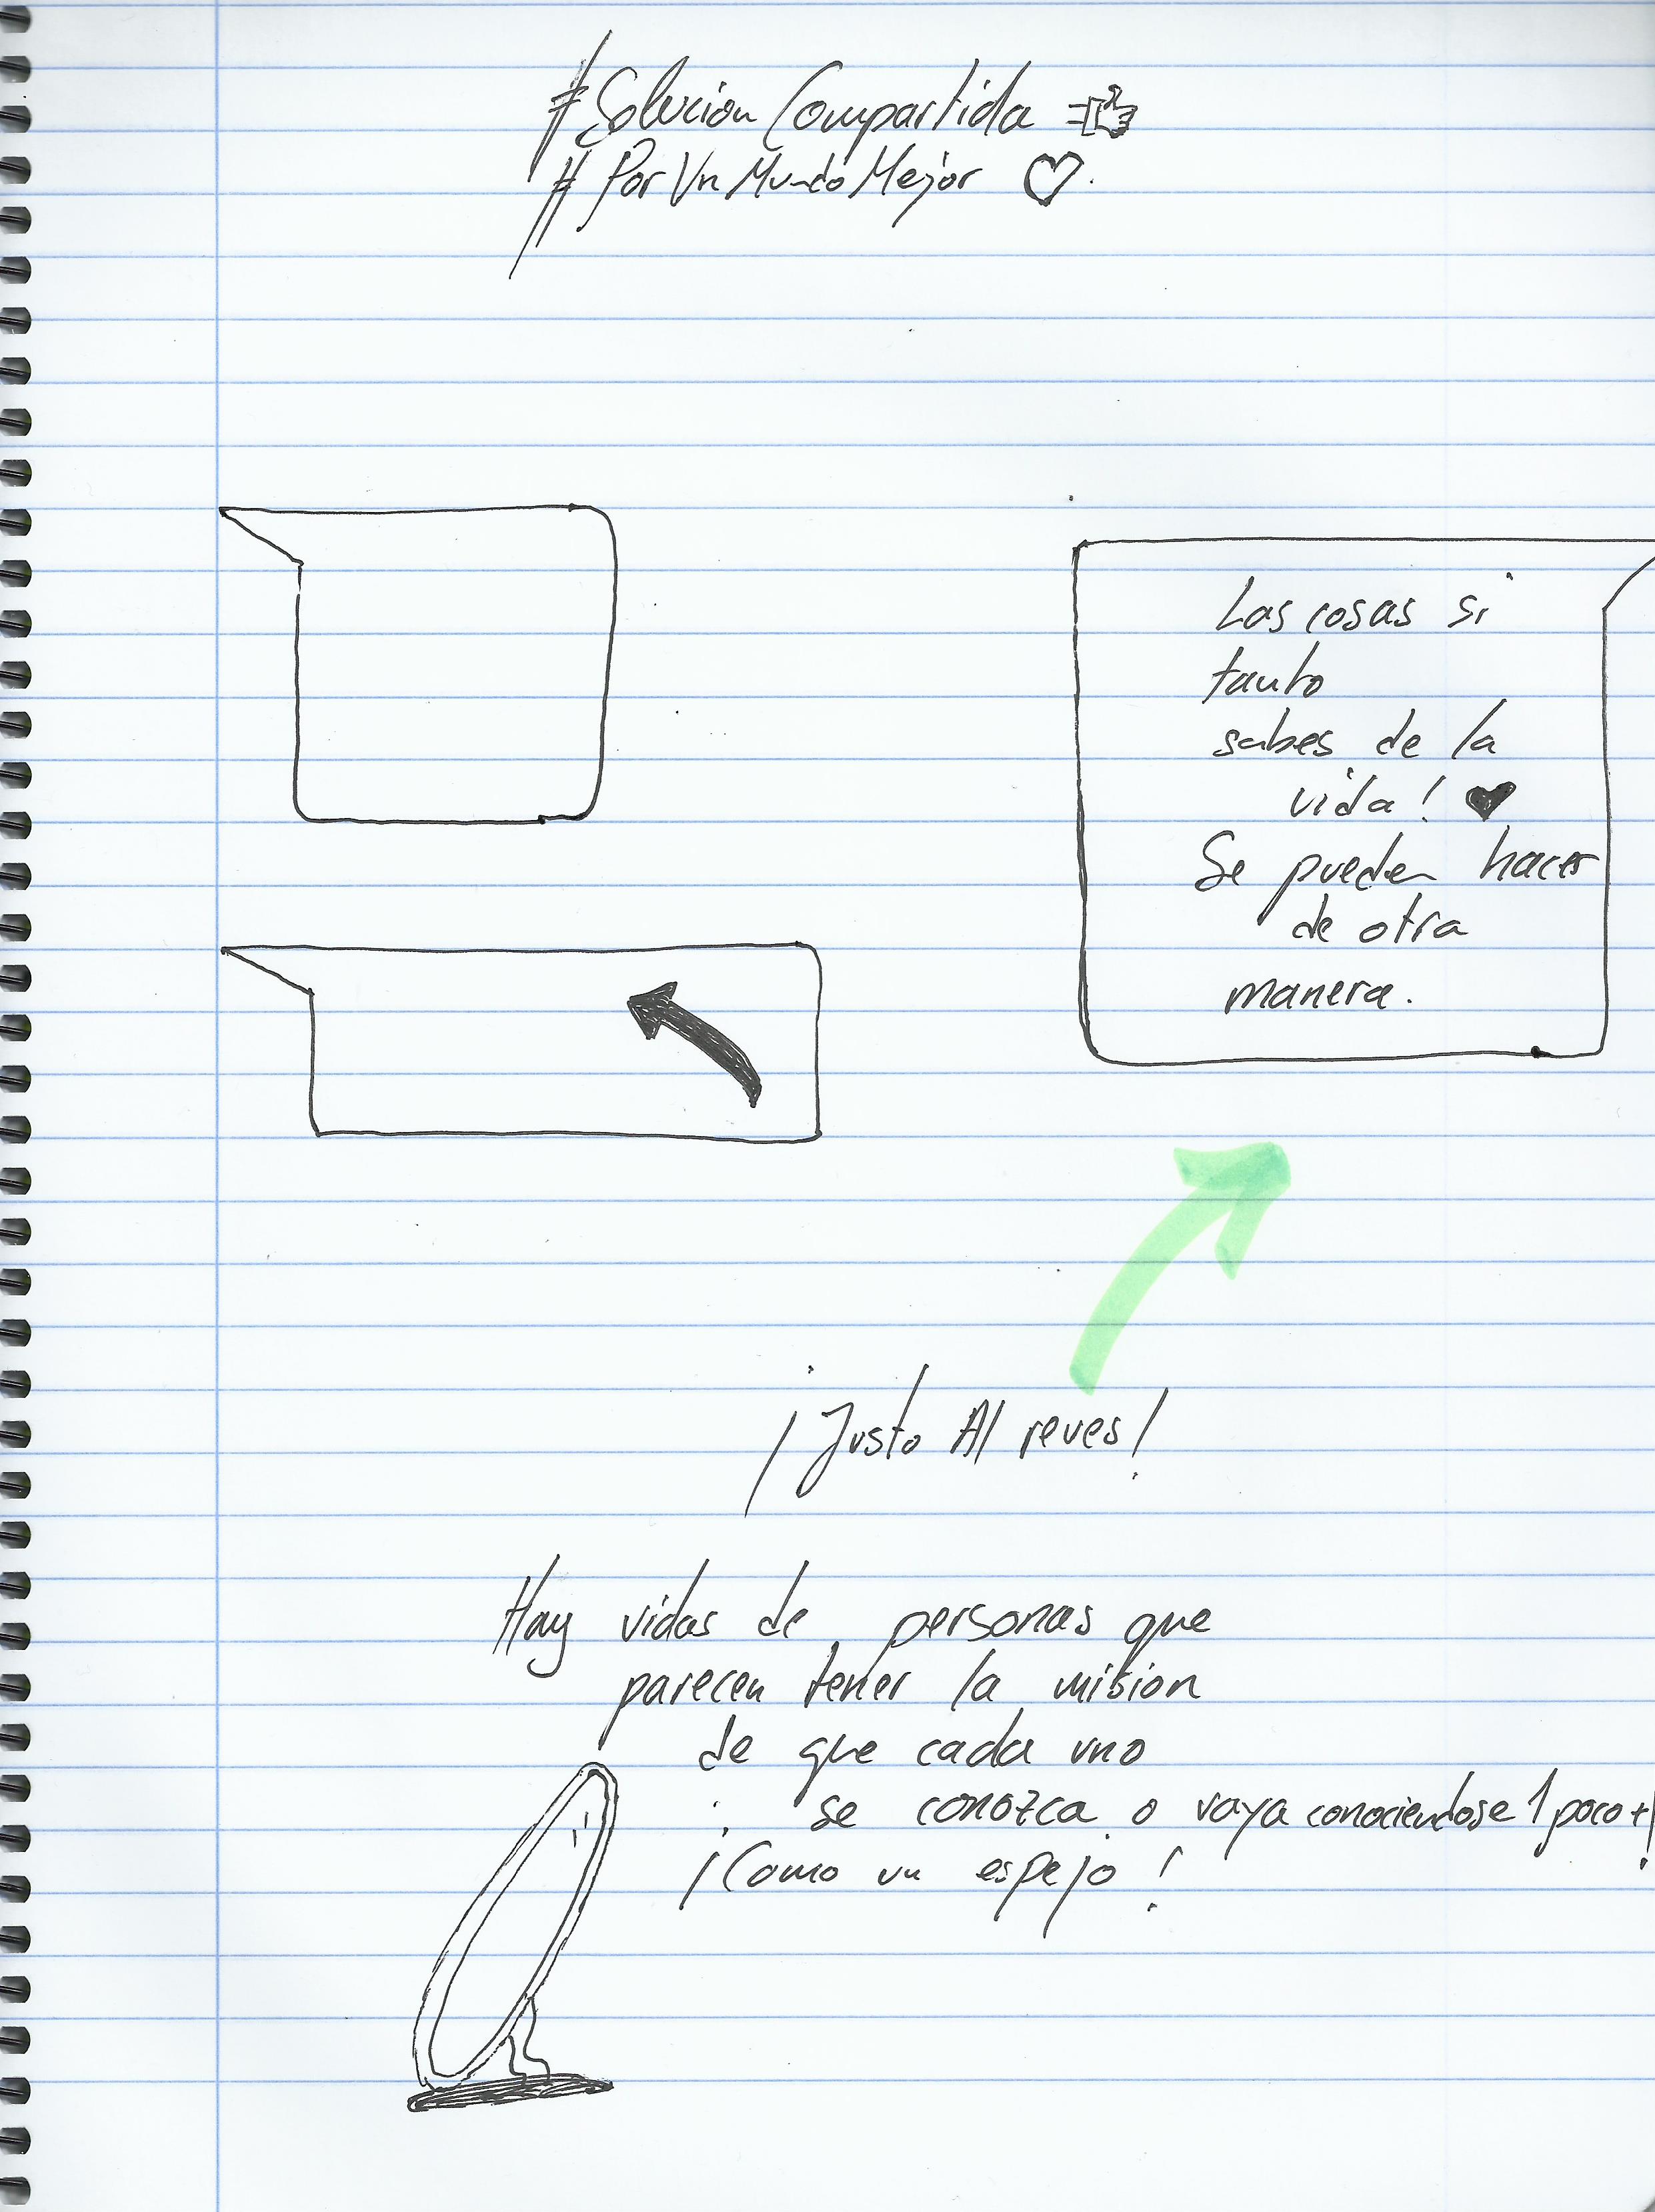 #SolucionCompartida
#PorUnMundoMejor
Las cosas si
tanto
sabes de la
vida!
Se pueden hacer
de otra
manera.
¡Justo Al reves!
Hay vidas de personas que
parecen tener la mision
de que cada uno
se conozca o vaya conociendose 1 poco +!
¡Como un espejo!